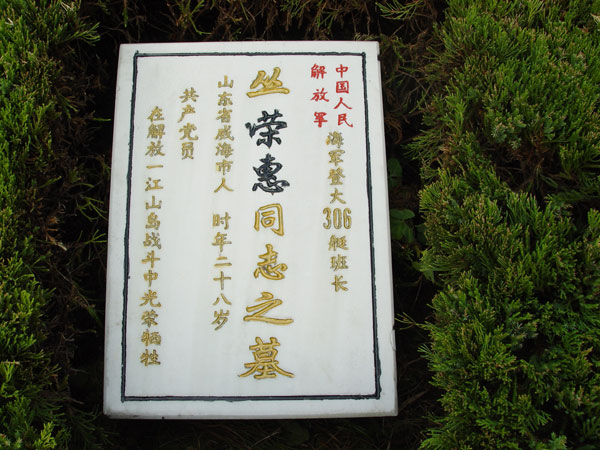 中国人民
解放军
海军登大306艇班长
丛荣惠同志之墓
山东省威海市人 时年二十八岁
共产党员
在解放一江山岛战斗中光荣牺牲